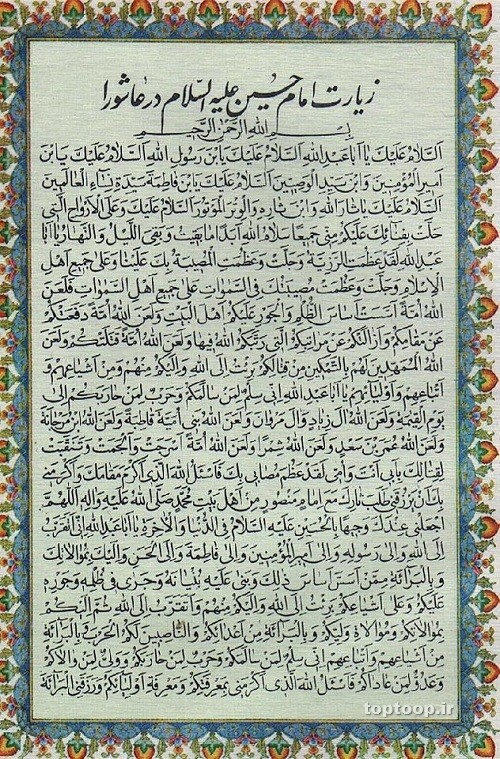 زیارت امام حسین علیه السلام در عاشورا
بِسْمِ اللهِ الرَّحْمٰنِ الرَّحیمِ
اَلسَّلامُ عَلَیْکَ یا اَبا عَبْدِاللهِ اَلسَّلامُ عَلَیْکَ یَابْنَ رَسُولِ اللهِ اَلسَّلامُ عَلَیْکَ یَابْنَ
اَمیرِ الْمُؤْمِنینَ وَابْنَ سَیِّدِ الْوَصِیّینَ اَلسَّلامُ عَلَیْکَ یَابْنَ فاطِمَةَ سَیِّدَةِ نِساءِ الْعالَمینَ
اَلسَّلامُ عَلَیْکَ یا ثارَ اللهِ وَابْنَ ثارِهِ وَالْوِتْرَ الْمَوْتُورَ اَلسَّلامُ عَلَیْکَ وَعَلَی الْاَرْواحِ الَّتی
حَلَّتْ بِفِنائِکَ عَلَیْکُمْ مِنّی جَمیعًا سَلامُ اللهِ اَبَدًا ما بَقیتُ وَبَقِیَ اللَّیْلُ وَالنَّهارُ یا اَبا
عَبْدِاللهِ لَقَدْ عَظُمَتِ الرَّزِیَّةُ وَجَلَّتْ وَعَظُمَتِ الْمُصیبَةُ بِکَ عَلَیْنا وَعَلی جَمیعِ اَهْلِ
الْاِسْلامِ وَجَلَّتْ وَعَظُمَتْ مُصیبَتُکَ فِی السَّمٰواتِ عَلی جَمیعِ اَهْلِ السَّمٰواتِ فَلَعَنَ
اللهُ اُمَّةً اَسَّسَتْ اَساسَ الظُّلْمِ وَالْجَوْرِ عَلَیْکُمْ اَهْلَ الْبَیْتِ وَلَعَنَ اللهُ اُمَّةً دَفَعَتْکُمْ
عَنْ مَقامِکُمْ وَاَزالَتْکُمْ عَنْ مَراتِبِکُمُ الَّتی رَتَّبَکُمُ اللهُ فیها وَلَعَنَ اللهُ اُمَّةً قَتَلَتْکُمْ وَلَعَنَ
اللهُ الْمُمَهِّدینَ لَهُمْ بِالتَّمْکینِ مِنْ قِتالِکُمْ بَرِئْتُ اِلَی اللهِ وَاِلَیْکُمْ مِنْهُمْ وَمِنْ اَشْیاعِهِمْ وَ
اَتْباعِهِمْ وَاَوْلِیائِهِمْ یا اَبا عَبْدِاللهِ اِنّی سِلْمٌ لِمَنْ سالَمَکُمْ وَحَرْبٌ لِمَنْ حارَبَکُمْ اِلی
یَوْمِ الْقِیٰمَةِ وَلَعَنَ اللهُ الَ زِیادٍ وَالَ مَرْوانَ وَلَعَنَ اللهُ بَنی اُمَیَّةَ قاطِبَةً وَلَعَنَ اللهُ ابْنَ مَرْجانَةَ
وَلَعَنَ اللهُ عُمَرَ بْنَ سَعْدٍ وَلَعَنَ اللهُ شِمْرًا وَلَعَنَ اللهُ اُمَّةً اَسْرَجَتْ وَاَلْجَمَتْ وَتَنَقَّبَتْ
لِقِتالِکَ بِاَبی اَنْتَ وَاُمّی لَقَدْ عَظُمَ مُصابی بِکَ فَاَسْئَلُ اللهَ الَّذی اَکْرَمَ مَقامَکَ وَاَکْرَمَنی
بِکَ اَنْ یَرْزُقَنی طَلَبَ ثارِکَ مَعَ اِمامٍ مَنْصُورٍ مِنْ اَهْلِ بَیْتِ مُحَمَّدٍ صَلَّی اللهُ عَلَیْهِ وَالِهِ اَللّهُمَّ
اجْعَلْنی عِنْدَکَ وَجیهًا بِالْحُسَیْنِ عَلَیْهِ السَّلامُ فِی الدُّنْیا وَالْاٰخِرَةِ یا اَبا عَبْدِاللهِ اِنّی اَتَقَرَّبُ
اِلَی اللهِ وَاِلی رَسُولِهِ وَاِلی اَمیرِ الْمُؤْمِنینَ وَاِلی فاطِمَةَ وَاِلَی الْحَسَنِ وَاِلَیْکَ بِمُوالاتِکَ
وَبِالْبَرائَةِ مِمَّنْ اَسَّسَ اَساسَ ذٰلِکَ وَبَنی عَلَیْهِ بُنْیانَهُ وَجَری فی ظُلْمِهِ وَجَوْرِهِ
عَلَیْکُمْ وَعَلی اَشْیاعِکُمْ بَرِئْتُ اِلَی اللهِ وَاِلَیْکُمْ مِنْهُمْ وَاَتَقَرَّبُ اِلَی اللهِ ثُمَّ اِلَیْکُمْ
بِمُوالاتِکُمْ وَمُوالاةِ وَلِیِّکُمْ وَبِالْبَرائَةِ مِنْ اَعْدائِکُمْ وَالنّاصِبینَ لَکُمُ الْحَرْبَ وَبِالْبَرائَةِ
مِنْ اَشْیاعِهِمْ وَاَتْباعِهِمْ اِنّی سِلْمٌ لِمَنْ سالَمَکُمْ وَحَرْبٌ لِمَنْ حارَبَکُمْ وَوَلِیٌّ لِمَنْ والاکُمْ
وَعَدُوٌّ لِمَنْ عاداکُمْ فَاَسْئَلُ اللهَ الَّذی اَکْرَمَنی بِمَعْرِفَتِکُمْ وَمَعْرِفَةِ اَوْلِیائِکُمْ وَرَزَقَنِی الْبَرائَةَ
toptoop.ir